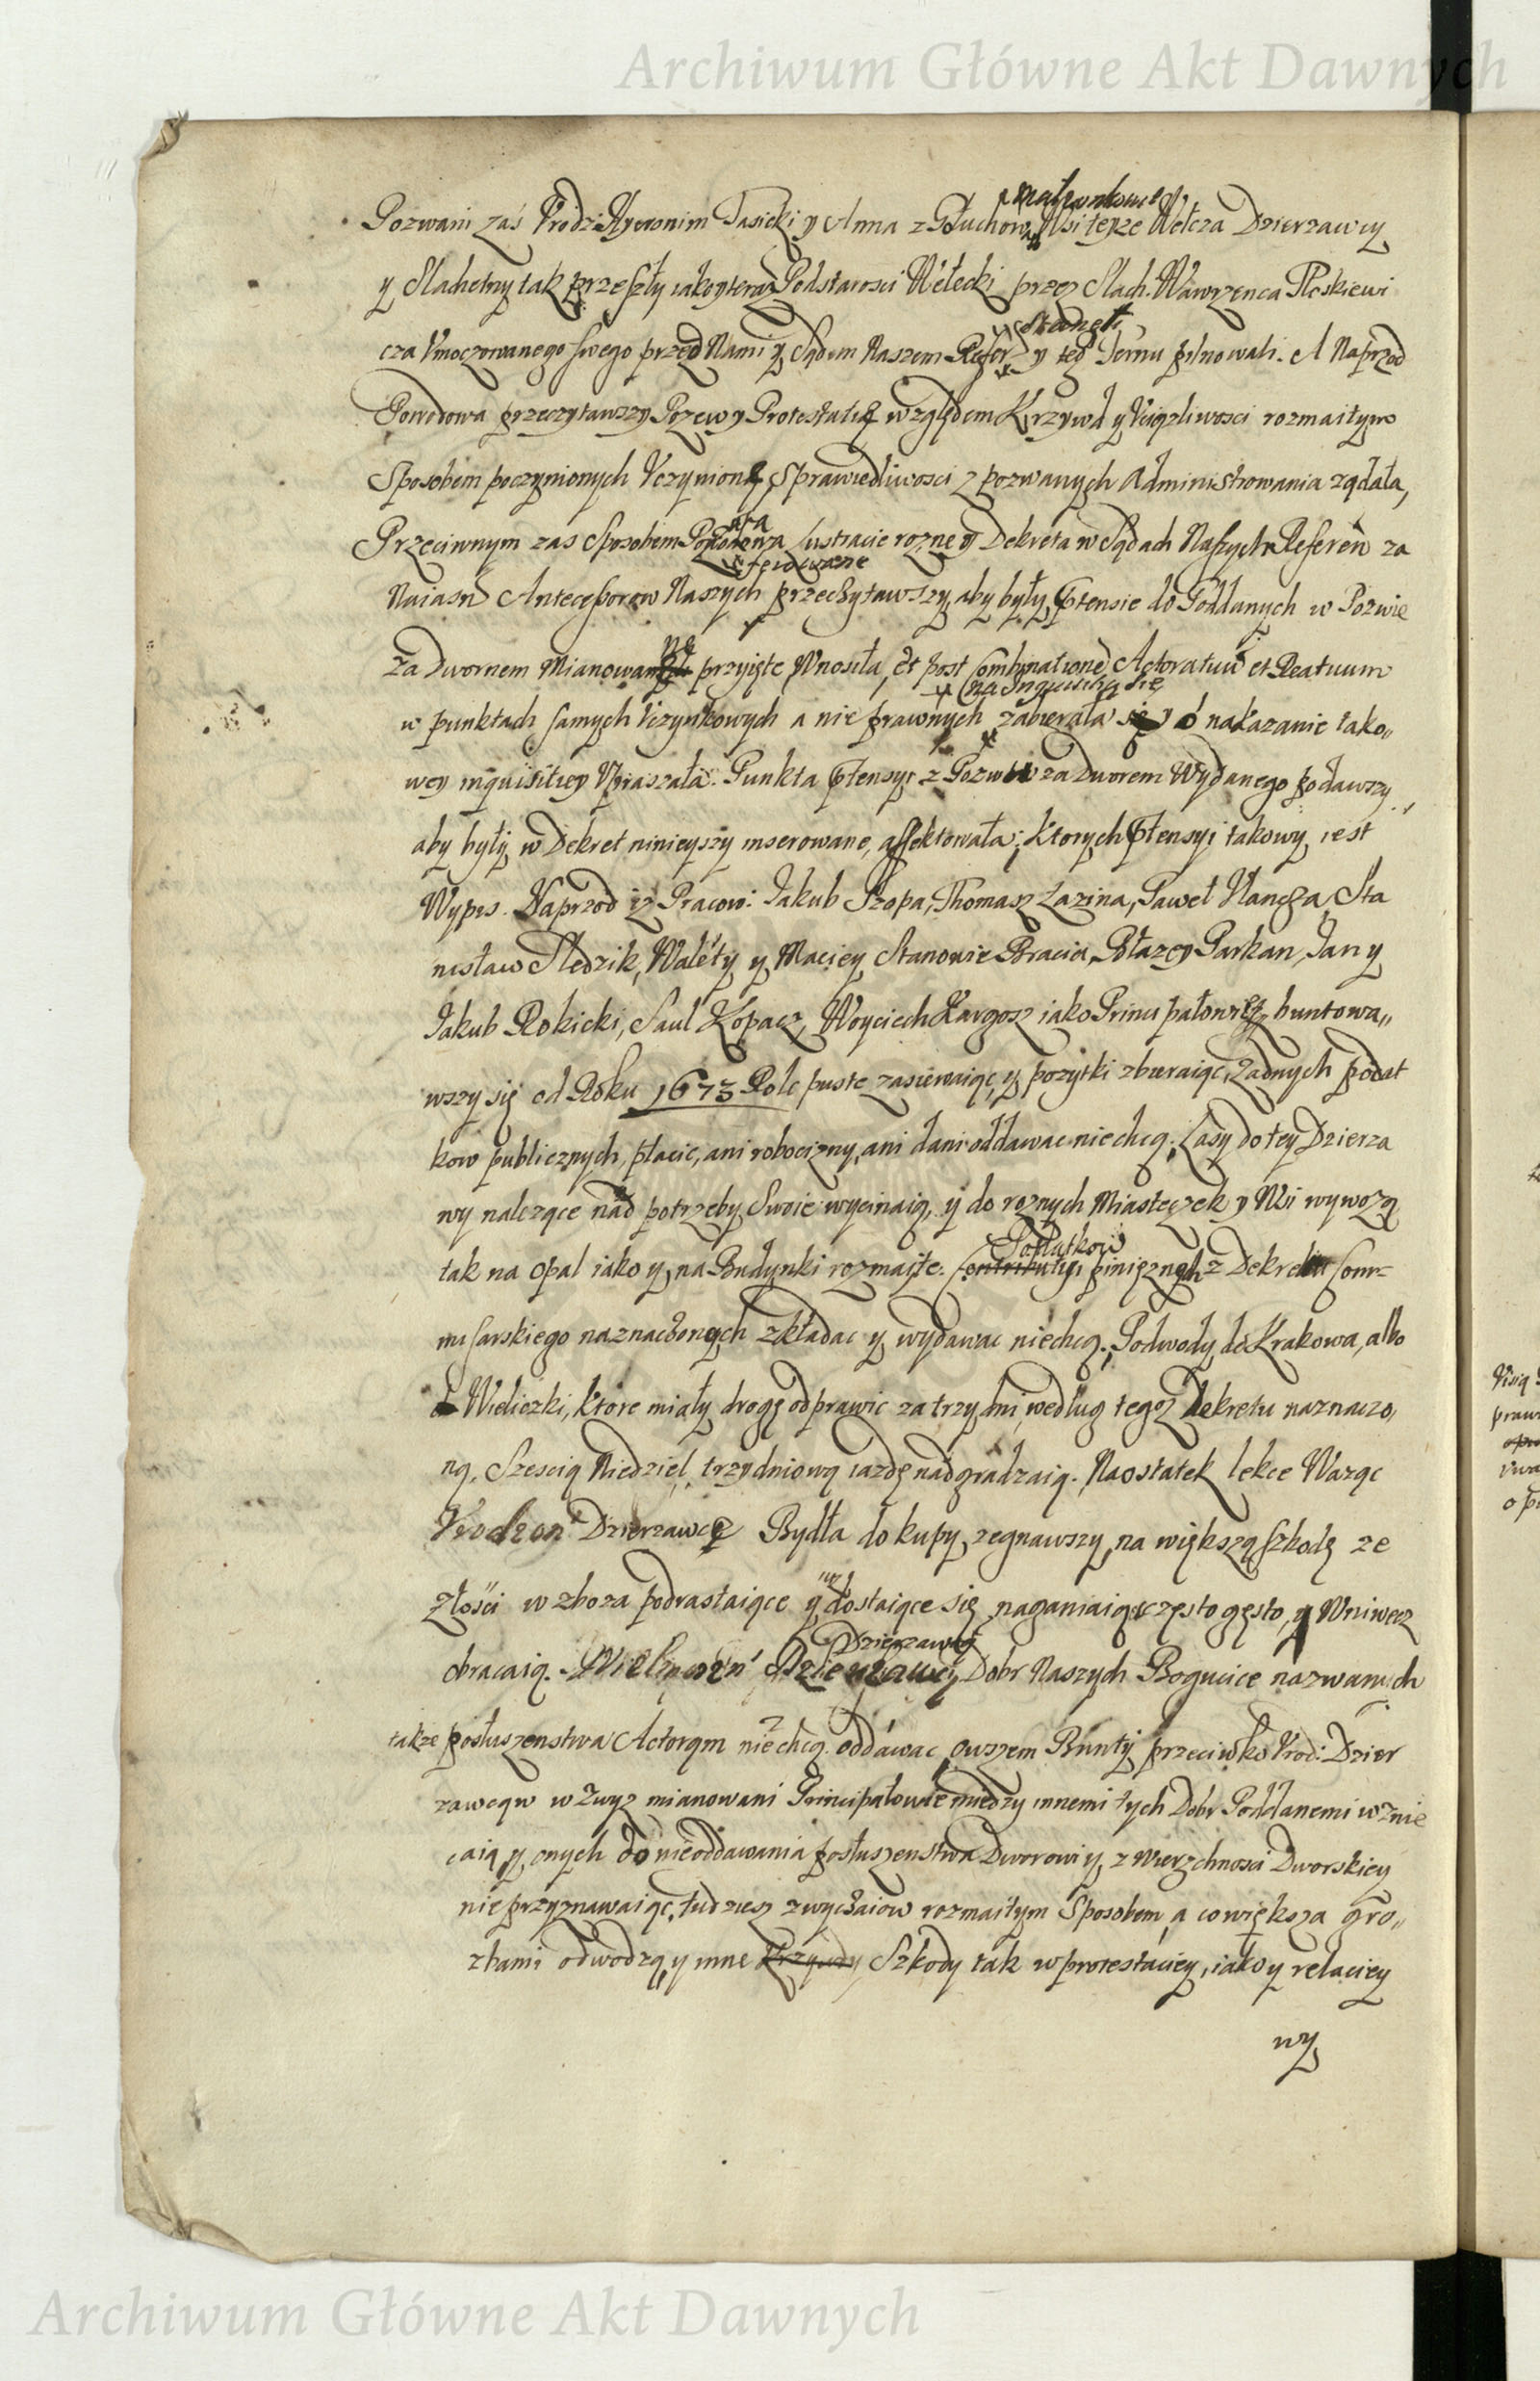 Archiwum Główne Akt Dawnych
małzonkowie
Pozwani zaś Vrodz: Hyeronim Tasicki y Anna z Głuchowa Wsi teyze Wełcza Dzierzawcy
y Slachetny tak przeszły iako y teraz Podstarosci Wełecki przez Slach. Wawrzenca Pleskiewi
stanęli
cza Vmoczowanego swego przed Nami y Sądem Naszem Refer y teo Termu pilnowali. A Naprzod
Powodowa przeczytawszy Pozew y Protestatię względem Krzywd y Vciązliwosci rozmaitym
Sposobem poczynionych Vczynioną Sprawiedliwosci z pozwanych Administrowania ządała,
Przeciwnym zas Sposobem Lustracie rozne y Dekreta w Sądach Naszych Referen za
ferowane
Naiasn Antecessorow Naszych przeczytawszy, aby były Ptensie do Poddanych w Pozwie
ne
za Dwornem Mianowane przyięte Wnosiła, et post Combinationem Actoratuu et Reatuum
na Inquisitią się
w punktach samych Vczynkowych a nie prawnych zabierała się y o nakazanie tako„
wey inquisitiey Vpraszała. Punkta Ptensyi z Pozwu za Dworem Wydanego podawszy,
aby były w Dekret ninieyszy inserowane, affektowała; Ktorych Ptensyi takowy iest
Wypis. Naprzod iz Pracow: Iakub Szopa, Thomasz Łazina, Paweł Sta
nisław Sledzik, Walęty y Maciey Stanowie Bracia, Błazey Parkan, Jan y
Iakub Rokicki, Saul Kopacz, Woyciech Kargosz iako Principałowie, zbuntowa„
wszy się od Roku 1673 Role puste zasiewaiąc, y pozytki zbieraiąc, Zadnych podat
kow publicznych, płacic, ani robocizny, ani dani oddawac niechcą; Lasy do tey Dzierza
wy nalezące nad potrzeby Swoie wycinaią, y do roznych Miasteczek y Wsi wywozą
Podatkow
tak na opal iako y na Budynki rozmaite. Contributyi pinięznych z Dekretu Com=
missarskiego naznaczonych zkładac y wydawac niechcą; Podwody do Krakowa, albo
do Wieliczki, ktore miały drogę odprawic za trzy dni, według tegoz Dekretu naznaczo„
ną, Szescią Niedziel, trzydniową iazdę nadgradzaią. Naostatek lekce Waząc
Vrodzon Dzierzawcę Bydła do kupy zegnawszy, na większą szkodę ze
złości w zboza podrastaiące y dostaiące się naganiaiąc często gęsto, y Wniwecz
Dzierzawcy
obracaią. Dobr Naszych Bogucice nazwanych
takze posłuszenstwa Actorom niechcą oddawac, owszem Bunty przeciwko Vrod: Dzier
zawcom wzwyz mianowani Principałowie miedzy innemi tych Dobr Poddanemi wznie
caią y onych do nieoddawania posłuszenstwa Dworowi y z wierzchnosci Dworskiey
nie przyznawaiąc, tudziesz zwyczaiow rozmaitym Sposobem, a co większa gro„
zbami odwodzą, y inne Krzywdy Szkody tak w protestaciey, iako y relaciey
wy
Archiwum Główne Akt Dawnych